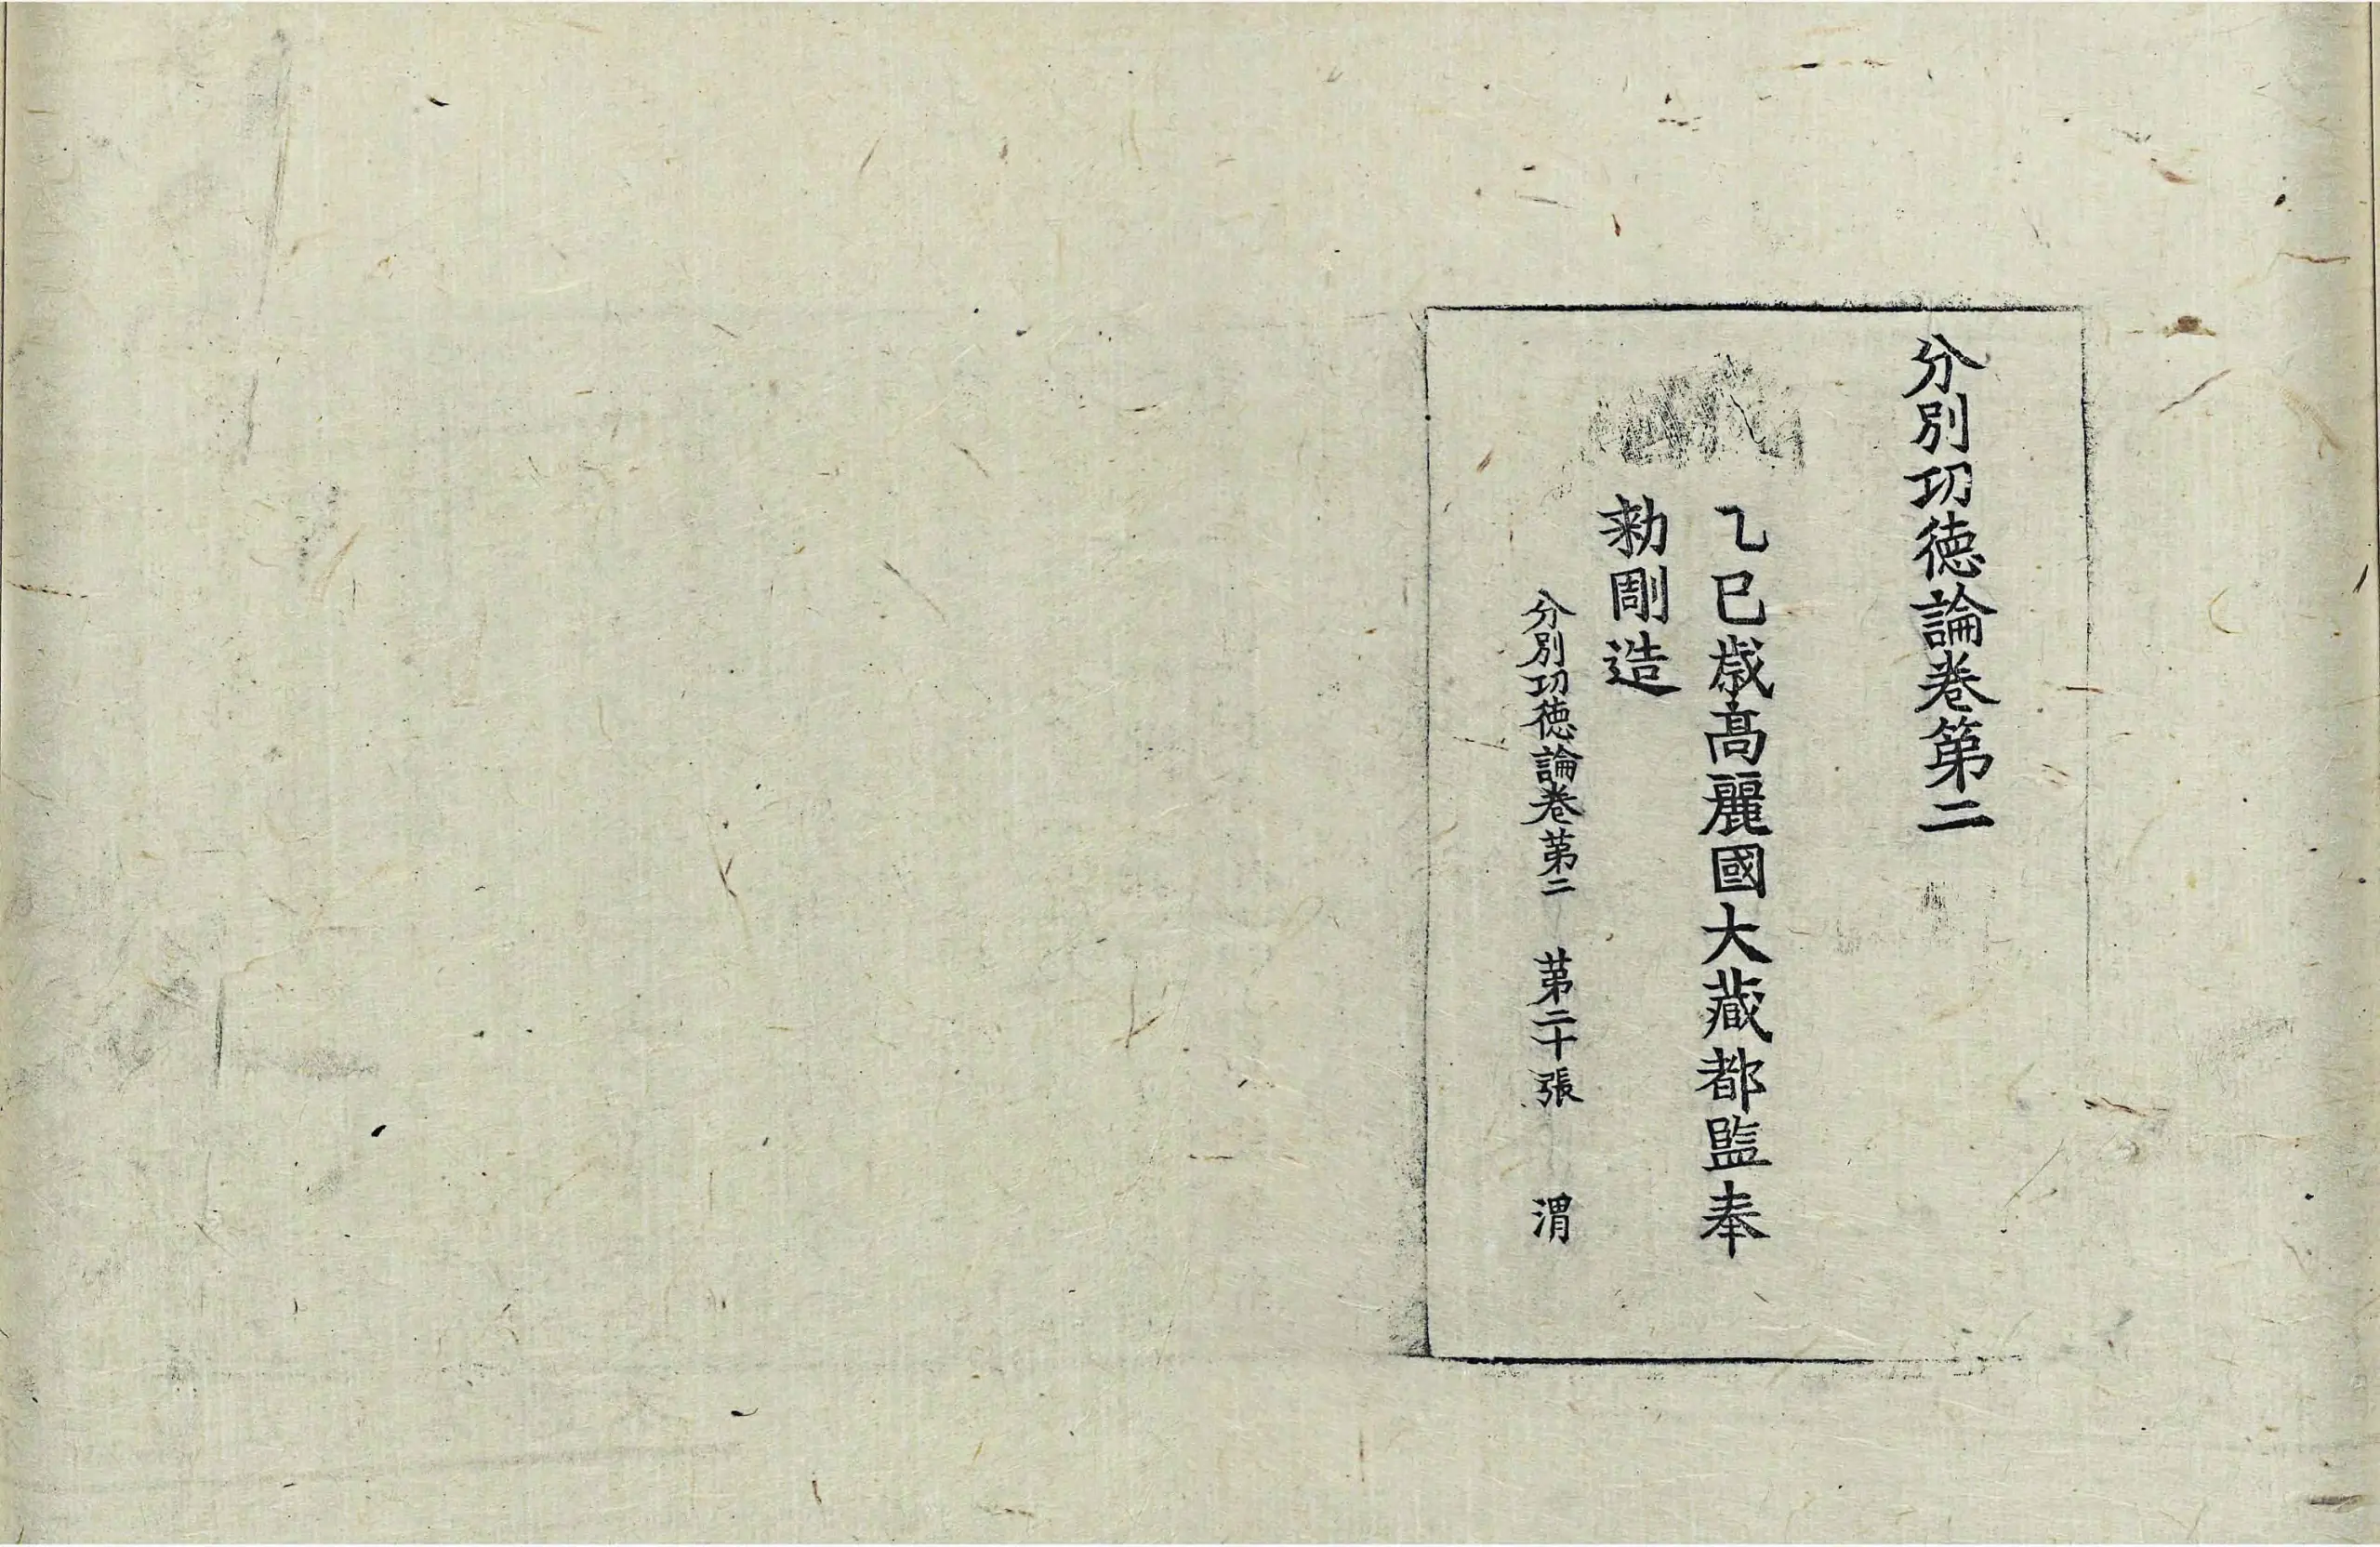 分別功德論卷第二
乙巳歲高麗國大藏都監奉
勑彫造
分別功德論卷第二 第二十張 渭